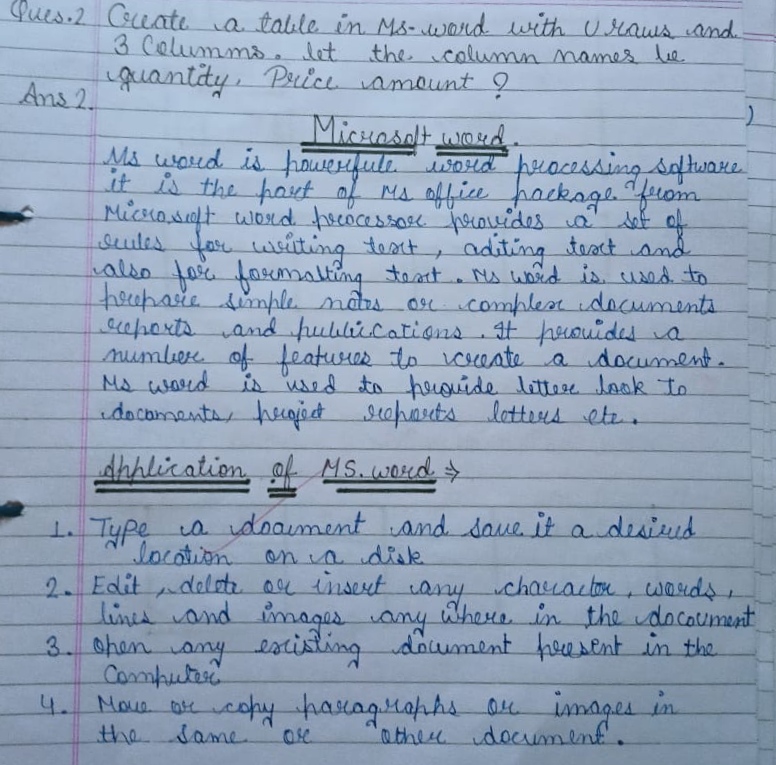 Ques.2 Create a table in Ms-word with U raws and
3 Columms. let the column names be
quantity, Price amount ?
Ans 2.
Microsoft word.
Ms word is powerfule word processing software
it is the part of Ms office package. from
Microsoft word processor provides a set of
rules for writing text, aditing text and
also for formatting text. Ms word is used to
prepare simple notes or complex documents
reports and publications. It provides a
number of features to create a document.
Ms word is used to provide letter look to
documents, project reports letters etc.
Application of MS. word ⇒
1. Type a document and save it a desired
location on a disk
2. Edit, delete or insert any character, words,
lines and images any where in the document
3. open any existing document present in the
Computer
4. Move or copy paragraphs or images in
the same or other document.